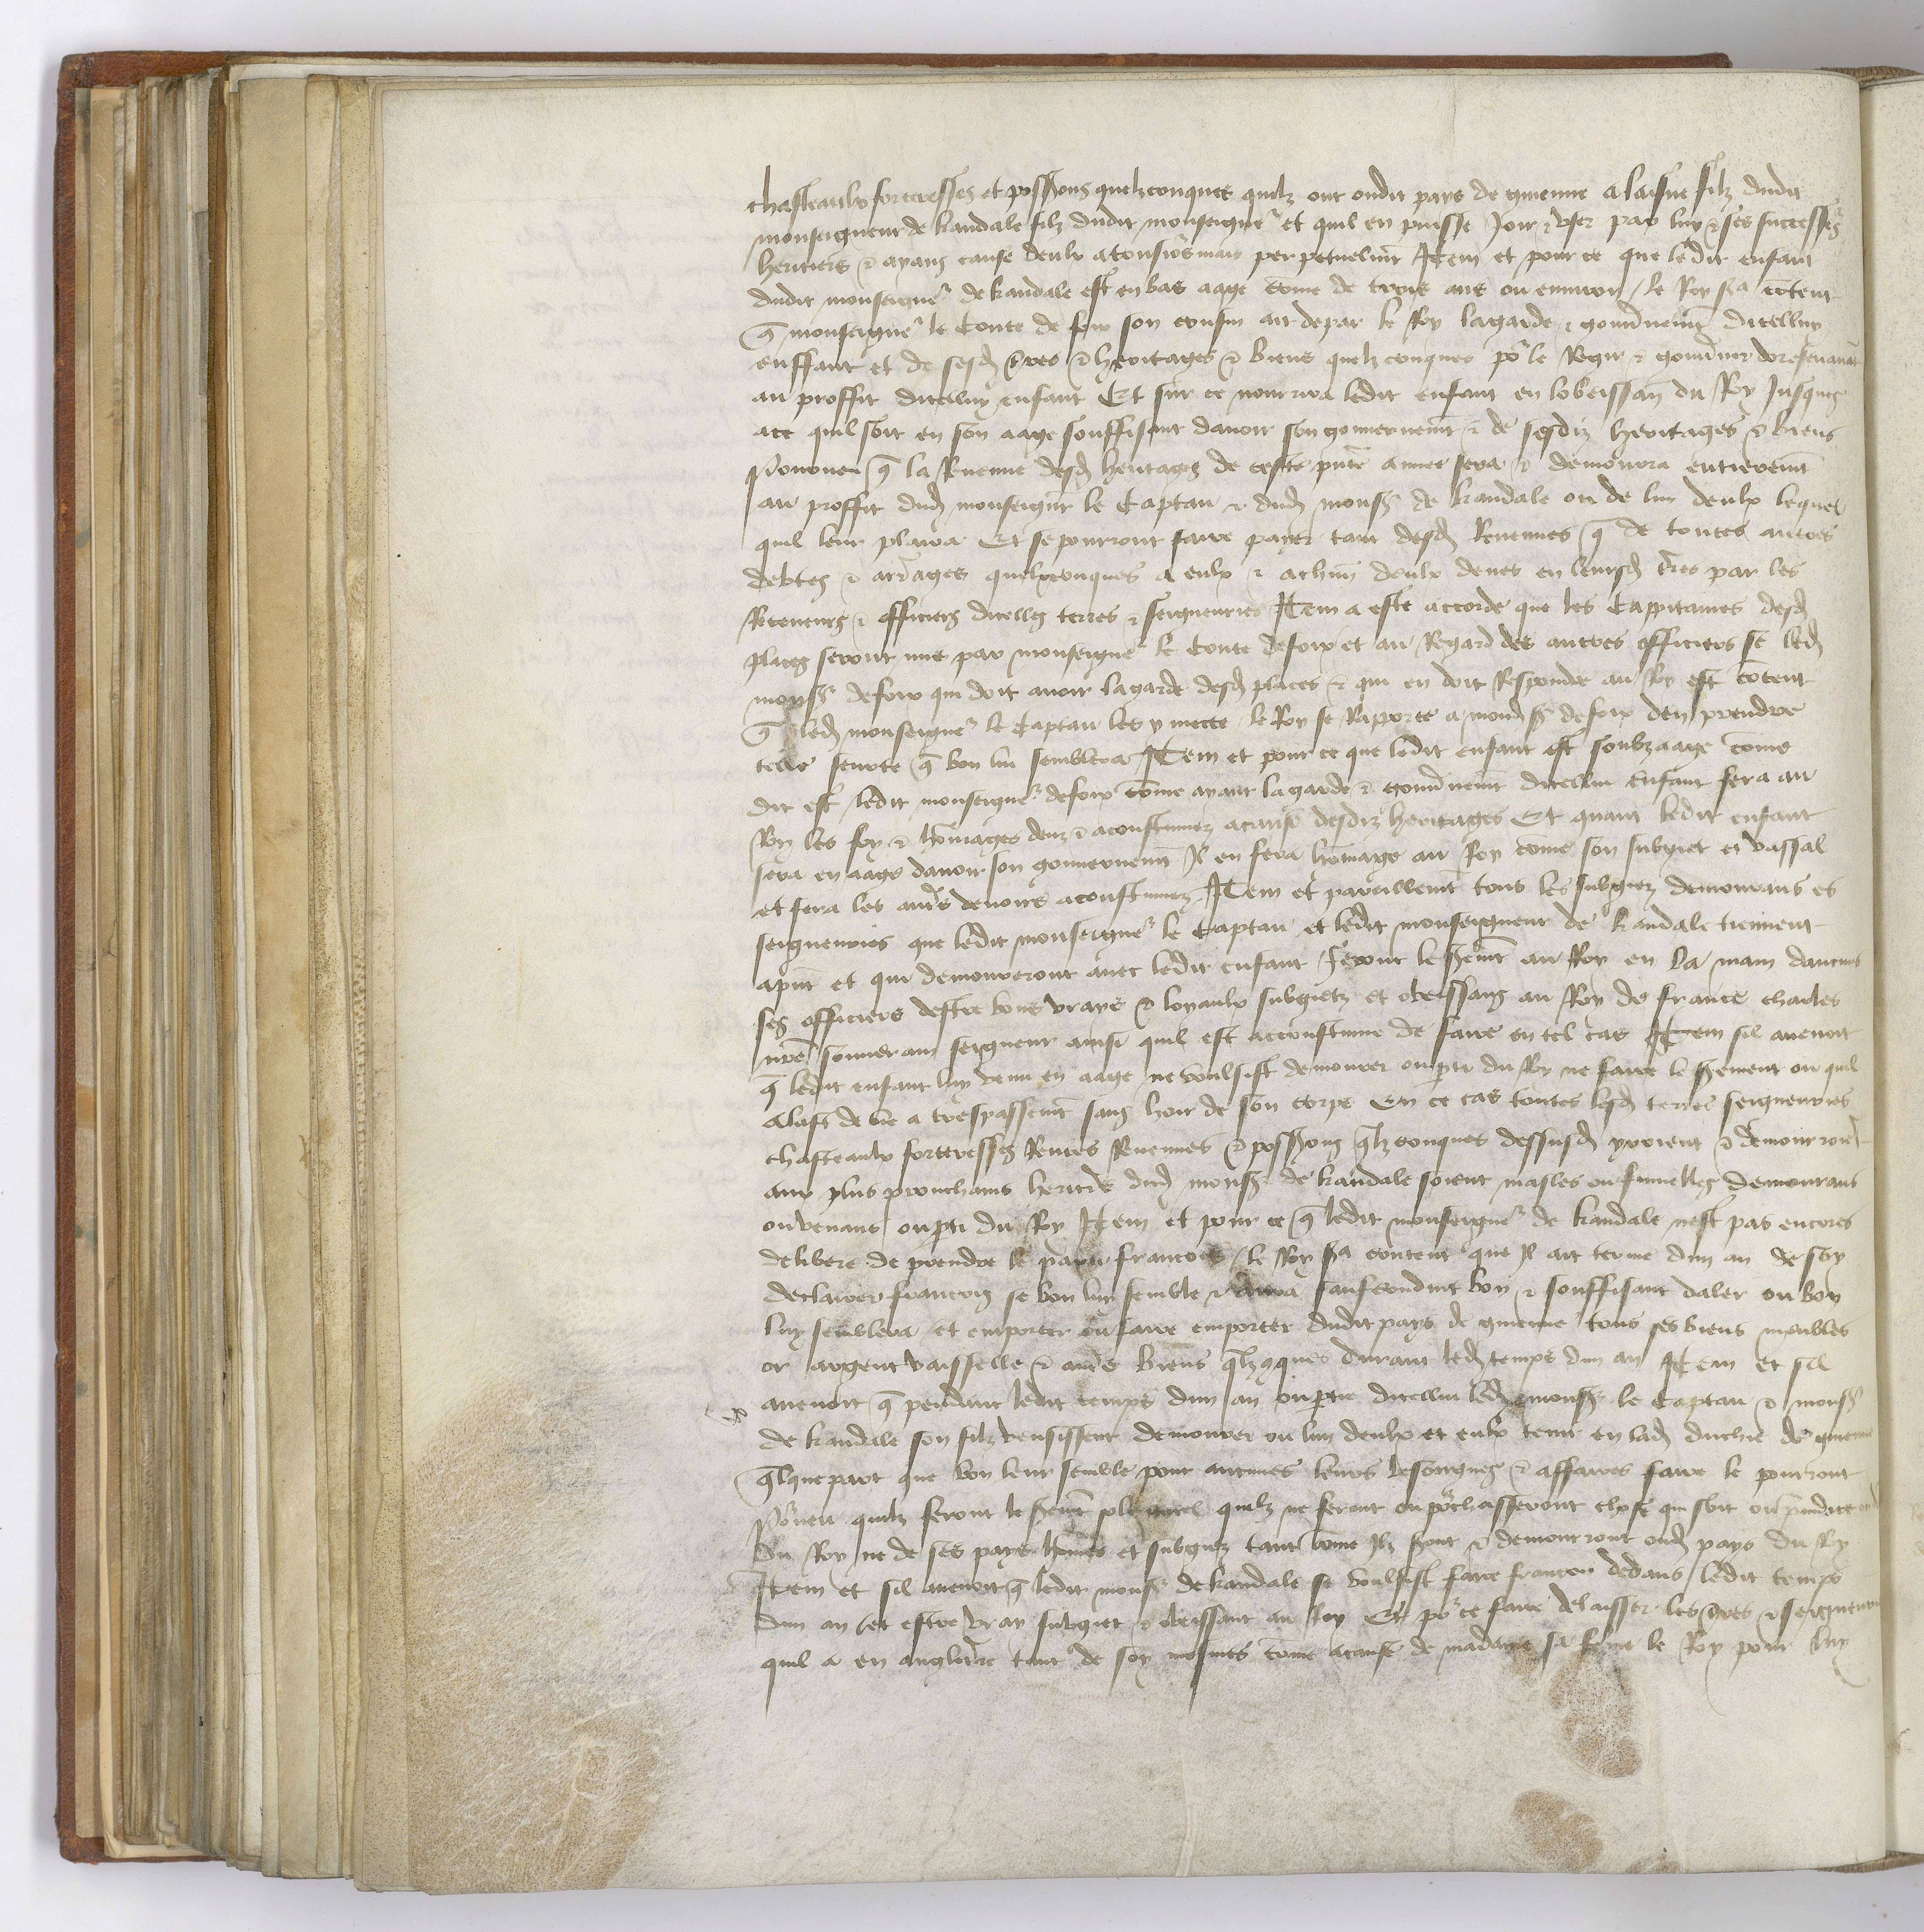 chasteaulx forteresses et possessions quelzconques quilz ont oudit pays de guienne a laisne filz dudit
monseigneur de kandale filz dudit monseigneʳ et quil en puisse Joir & vser par luy & ses successeʳˢ
heritiers & ayans cause deulx a tousioʳsmais perpetuelmēt Item et pour ce que ledit enfant
dudit monseigneʳ de kandale est en bas aage cōme de trois ans ou enuiron / le Roy sa cōtent
q̄ monseigneʳ le Conte de foix son cousin ait depar le Roy lagarde & gouūnemēt dicelluy
enffant et de sesd̄ t̄res & heritages & biens quelzconques poʳ le Regir & gouūner doresenauāt
au proffit dicelluy enfant Et sur ce nourrira ledit enfant en lobeissan̄ du Roy Jusques
ace quil soit en son aage souffisant dauoir son gouuernemēt & de sesdiz heritages & biens
Pourueu q̄ la Reuenue desd̄ heritages de ceste pn̄te annee sera & demourra entieremēt
au proffit dud̄ monseignʳ le Captau & dud̄ monsʳ de kandale ou de lun deulx lequel
quil leur plaira Et se pourront faire paier tant desd̄ Reuenues q̄ de toutes autres
debtes & arr̄ages quelzconques a eulx & achūn deulx deues en leursd̄ t̄res par les
Receueurs & officiers dicelles terres & seigneuries Item a este accorde que les Cappitaines desd̄
places seront mis par monseigneʳ le Conte defoix et au Regard des autres officiers se led̄
monsʳ defoix qui doit auoir lagarde desd̄ places & qui en doit Respondre au Roy est cōtent
q̄ led̄ monseigneʳ le Captau les y mecte le Roy se Rapporte a mond̄ sʳ defoix den prendre
telle seurte q̄ bon lui semblera Item et pour ce que ledit enfant est soubzaage cōme
dit est / ledit monseigneʳ defoix cōme ayant lagarde & gouūnemēt dicellui enfant fera au
Roy les foy & hōmages deuz & acoustumez acause desdiz heritages Et quant ledit enfant
sera en aage dauoir son gouuernemēt Il en fera hōmage au Roy cōme son subgiet et vassal
et fera les autʳes deuoirs acoustumez Item et pareillemēt tous les subgiez demourans es
seigneuries que ledit monseigneʳ le Captau et ledit monseigneur de kandale tiennent
apn̄t et qui demourront auec ledit enfant / feront le ser̄mēt au Roy en la main daucuns
ses officiers destre bons vrays & loyaulx subgietz et obeissans au Roy de france charles
nr̄e souuerain seigneur ainsi quil est accoustume de faire en tel cas Item sil auenoit
q̄ ledit enfant luy venu en aage ne voulsist demourer ou p̄ti du Roy ne faire le ser̄ement ou quil
alast de vie a trespassemēt sans hoir de son corps En ce cas toutes lesd̄ terres seigneuries
chasteaulx forteresses Rentes Reuenues & possessions q̄lzconques dessusd̄ yroient & demourroiēt
aux plus prouchains heritiʳs dud̄ monsʳ de kandale soient masles ou fumelles demourans
ou venans ou p̄ti du Roy Item et pour ce q̄ ledit monseigneʳ de kandale nest pas encores
delibere de prendre le party francois / le Roy sa content que Il ait terme dun an de soy
declairer francois se bon luy semble & aura saufconduit bon & souffisant daler ou bon
luy semblera / et emporter ou faire emporter dudit pays de guienne tous ses biens meubles
or argent vaisselle & autʳes biens q̄lzꝯques durant led̄ temps dun an Item et sil
auenoit q̄ pendant ledit temps dun an ou p̄tie dicellui led̄ monsʳ le Captau & monsʳ
de kandale son filz vensissent demourer ou lun deulx et eulx tenir en lad̄ duchie de guienne
q̄lque part que bon leur semble pour aucunes leurs besongnes & affaires faire le pourront
Pourueu quilz feront le ser̄mēt solennel quilz ne feront ou poʳchasseront chose qui soit ou p̄iudice
du Roy ne de ses pays hōmes et subgiez tant cōme Ilz seront & demourront oud̄ pays du Roy
Item et sil auenoit q̄ ledit monsʳ de kandale se voulsist faire francois dedans ledit temps
dun an (et estre vray subgiet & obeissant au Roy Et poʳ ce faire delaisser les t̄res & seigneuries
quil a en anglet̄re tant de soy mesmes cōme acause de madame sa feme le Roy pour luy